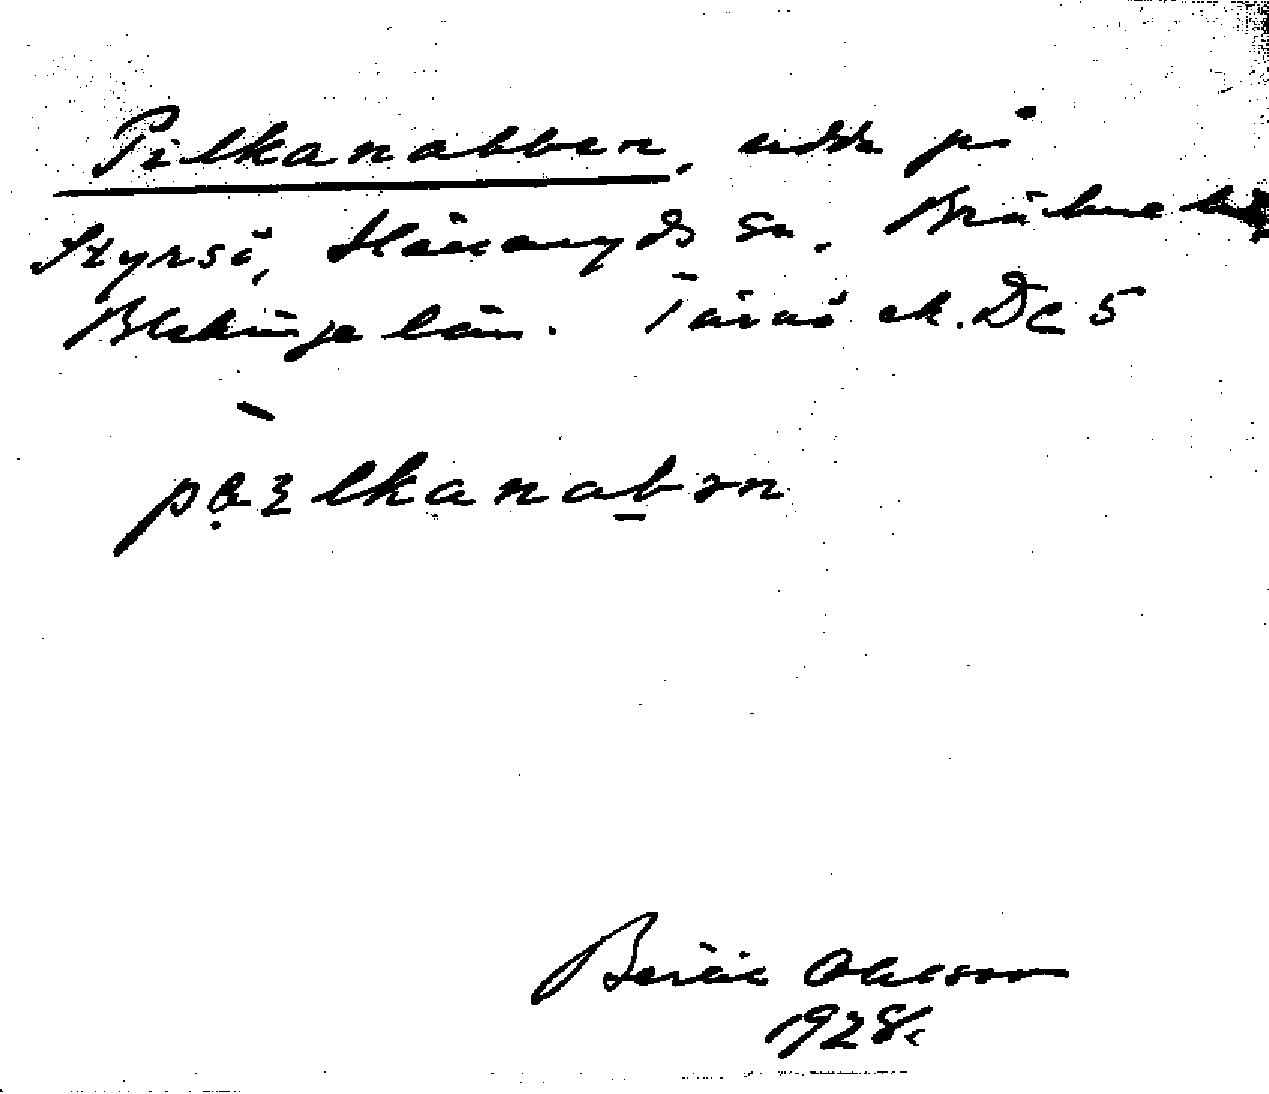 Pilkanabben, udde på
Styrsö, Hällaryds sn, Bräkne hd,
Blekinge län. Tärnö ek. DC 5
pɵɪlkanabən
Bertil Ohlsson
1928.